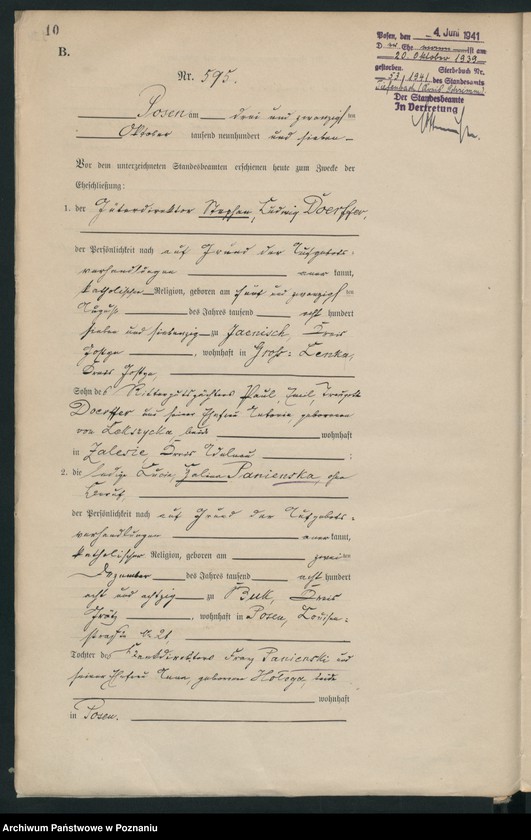 10
B.
Posen, den 4. Juni 1941
D Ehe ist am
20. Oktober 1939
gestorben. Sterbebuch Nr.
53/1941 des Standesamts
Der Standesbeamte
In Vertretung
Nr. 595.
Posen am drei und zwanzigsten
Oktober tausend neunhundert und sieben
Vor dem unterzeichneten Standesbeamten erschienen heute zum Zwecke der
Eheschließung:
1. der Güterdirektor Stephan, Ludwig Doerffer,
der Persönlichkeit nach auf Grund der Aufgebots-
verhandlungen anerkannt,
katholischer Religion, geboren am fünf und zwanzigsten
August des Jahres tausend acht hundert
sieben und siebenzig zu Jaenisch, Kreis
, wohnhaft in Gross-Lenka,
Kreis
Sohn des Rittergutspächters Paul, Emil,
Doerffer und seiner Ehefrau, geborenen
von, beide wohnhaft
in Zalesie, Kreis
2. die ledige Lucie, Halina Panienska, ohne
Beruf
der Persönlichkeit nach auf Grund der Aufgebots-
verhandlungen anerkannt,
katholischer Religion, geboren am zweiten
Dezember des Jahres tausend acht hundert
acht und achtzig zu Buk, Kreis
Grätz, wohnhaft in Posen, Louisen-
straße № 21
Tochter des Bankdirektors Franz Panienski und
seiner Ehefrau Anna, geborenen Hołoga, beide
wohnhaft
in Posen.
Archiwum Państwowe w Poznaniu